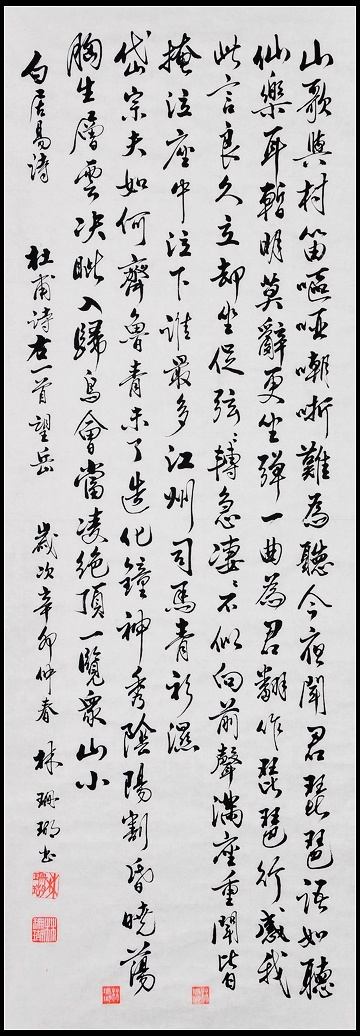 山歌與村笛嘔啞嘲哳難為聽今夜聞君琵琶語如聽
仙樂耳暫明莫辭更坐彈一曲為君翻作琵琶行感我
此言良久立却坐促弦〻轉急淒〻不似向前聲滿座重聞皆
掩泣座中泣下誰最多江州司馬青衫濕
岱宗夫如何齊魯青未了造化鐘神秀陰陽割昏曉蕩
胸生層雲決眦入歸鳥會當凌絕頂一覽眾山小
白居易詩 杜甫詩右一首望岳 歲次辛卯仲春 林珊瑚书